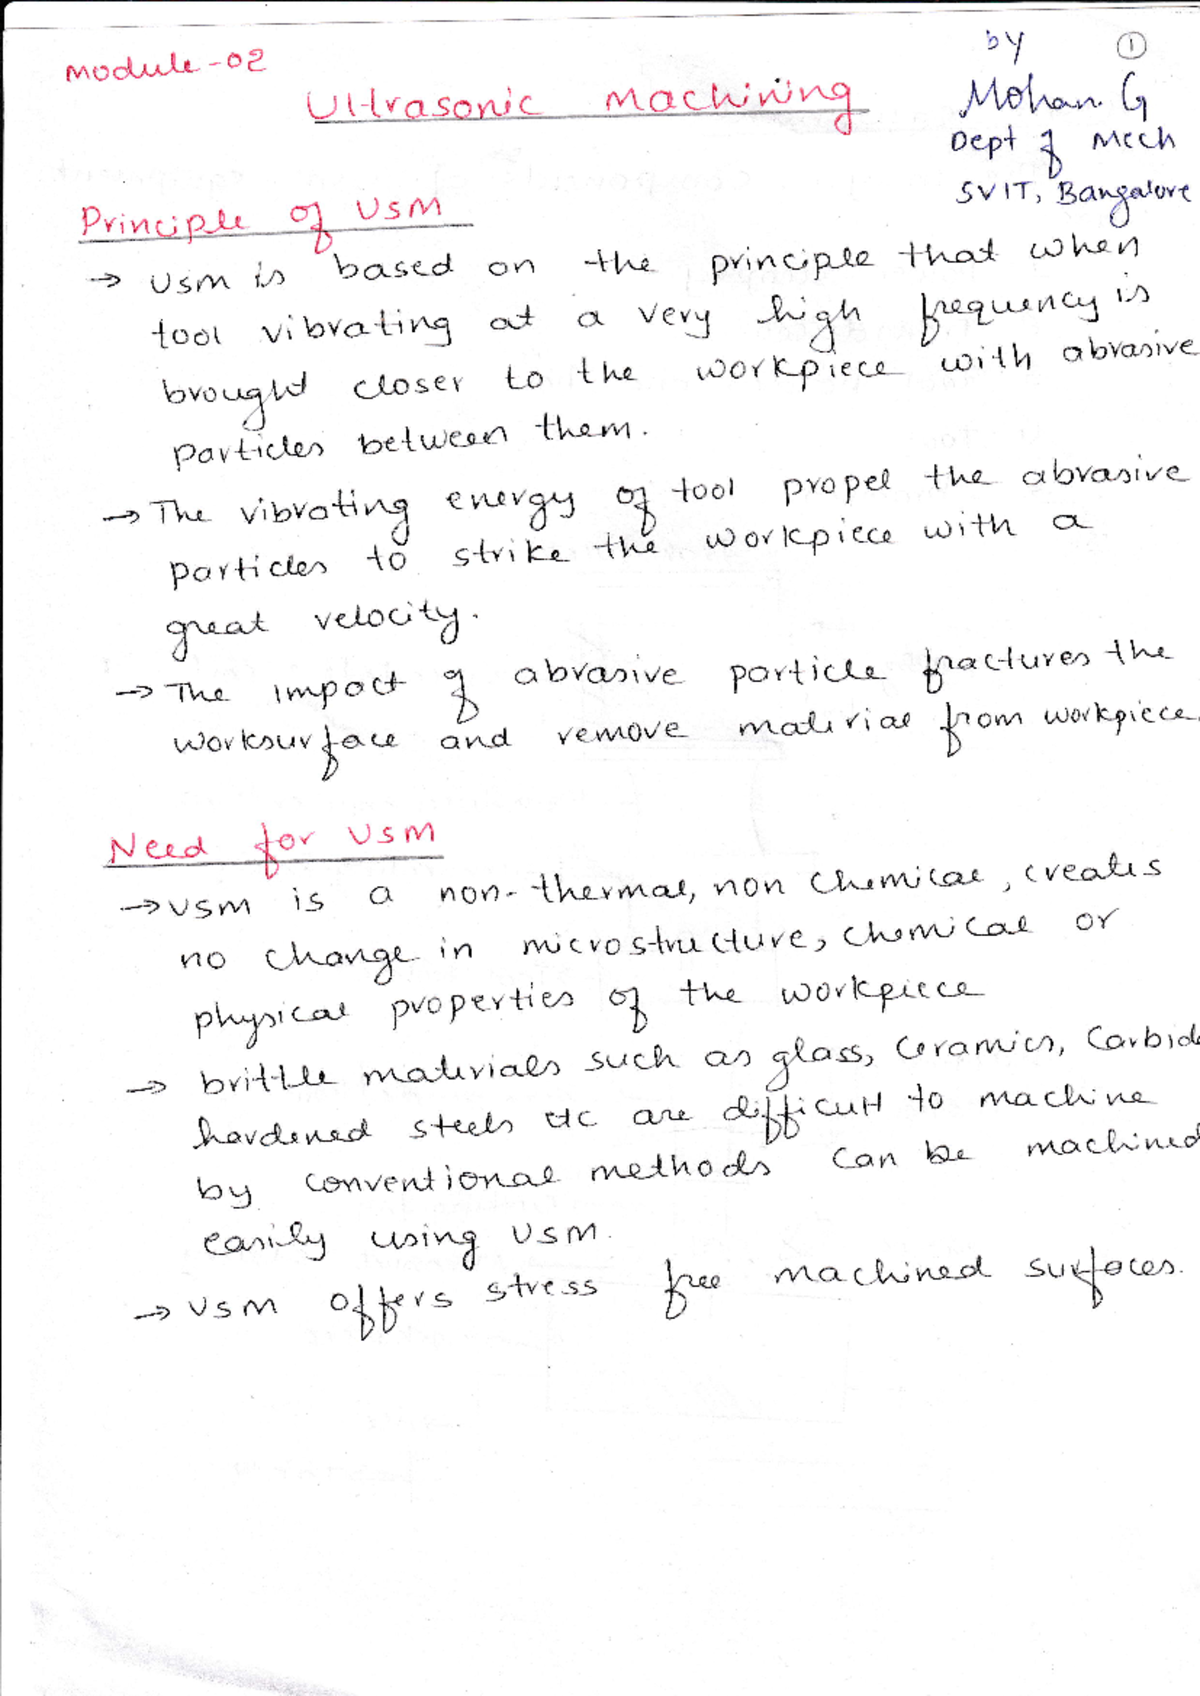 Module-02
by
1
Ultrasonic Machining
Mohan. G
Dept of Mech
SVIT, Bangalore
Principle of USM
→ USM is based on the principle that when
tool vibrating at a very high frequency is
brought closer to the workpiece with abrasive
particles between them.
→ The vibrating energy of tool propel the abrasive
particles to strike the workpiece with a
great velocity.
→ The impact of abrasive particle fractures the
worksurface and remove material from workpiece.
Need for USM
→ USM is a non-thermal, non chemical, creates
no change in microstructure, chemical or
physical properties of the workpiece
→ brittle materials such as glass, Ceramics, Carbide
hardened steels etc are difficult to machine
by conventional methods can be machined
easily using USM.
→ USM offers stress free machined surfaces.